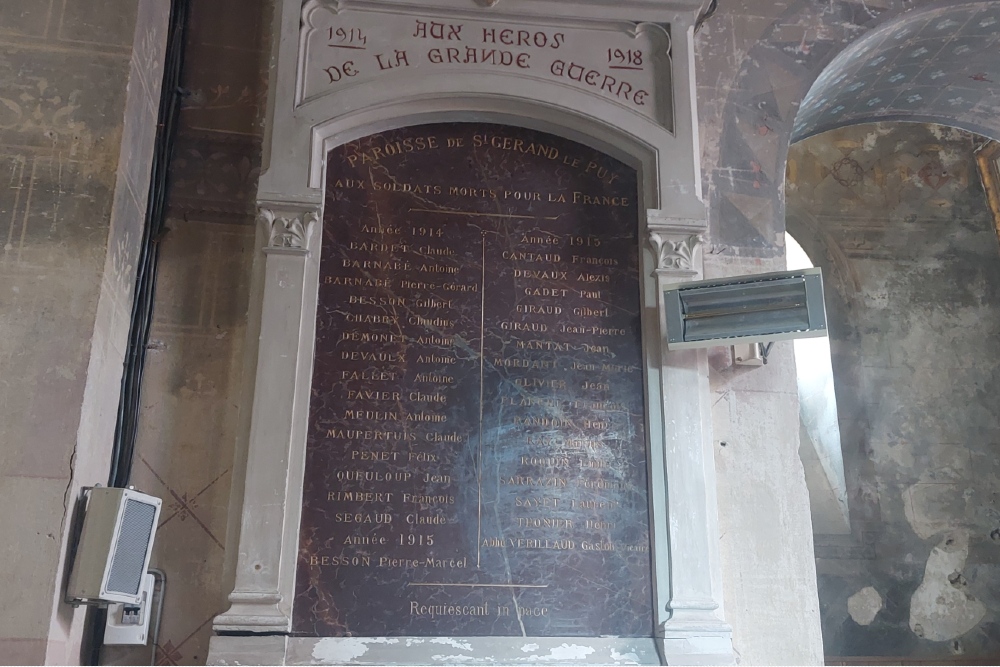 1914
AUX HEROS
1918
DE LA GRANDE GUERRE
PAROISSE DE St GERAND LE PUY
AUX SOLDATS MORTS POUR LA FRANCE
Année 1914
BARDET Claude
BARNABÉ Antoine
BARNABÉ Pierre-Gérard
BESSON Gilbert
CHABRY Claudius
DÉMONET Antoine
DEVAULX Antoine
FALLET Antoine
FAVIER Claude
MEULIN Antoine
MAUPERTUIS Claude
PENET Félix
QUEULOUP Jean
RIMBERT François
SEGAUD Claude
Année 1915
BESSON Pierre-Marcel
Année 1915
CANTAUD François
DEVAUX Alexis
GADET Paul
GIRAUD Gilbert
GIRAUD Jean-Pierre
MANTAT Jean
MORDANT Jean-Marie
OLIVIER Jean
François
SARRAZIN
THONIER Henri
Abbé VERILLAUD Gaston
Requiescant in pace